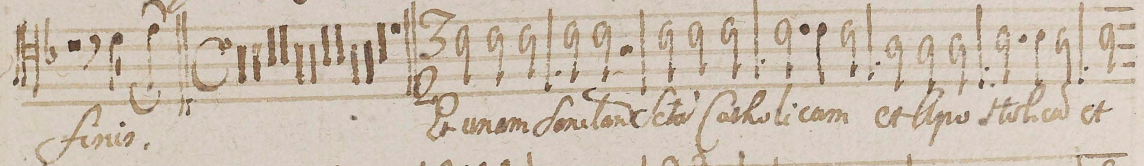 finis. Et unam Sanctam Sctã Catholicam et Apostolicã et